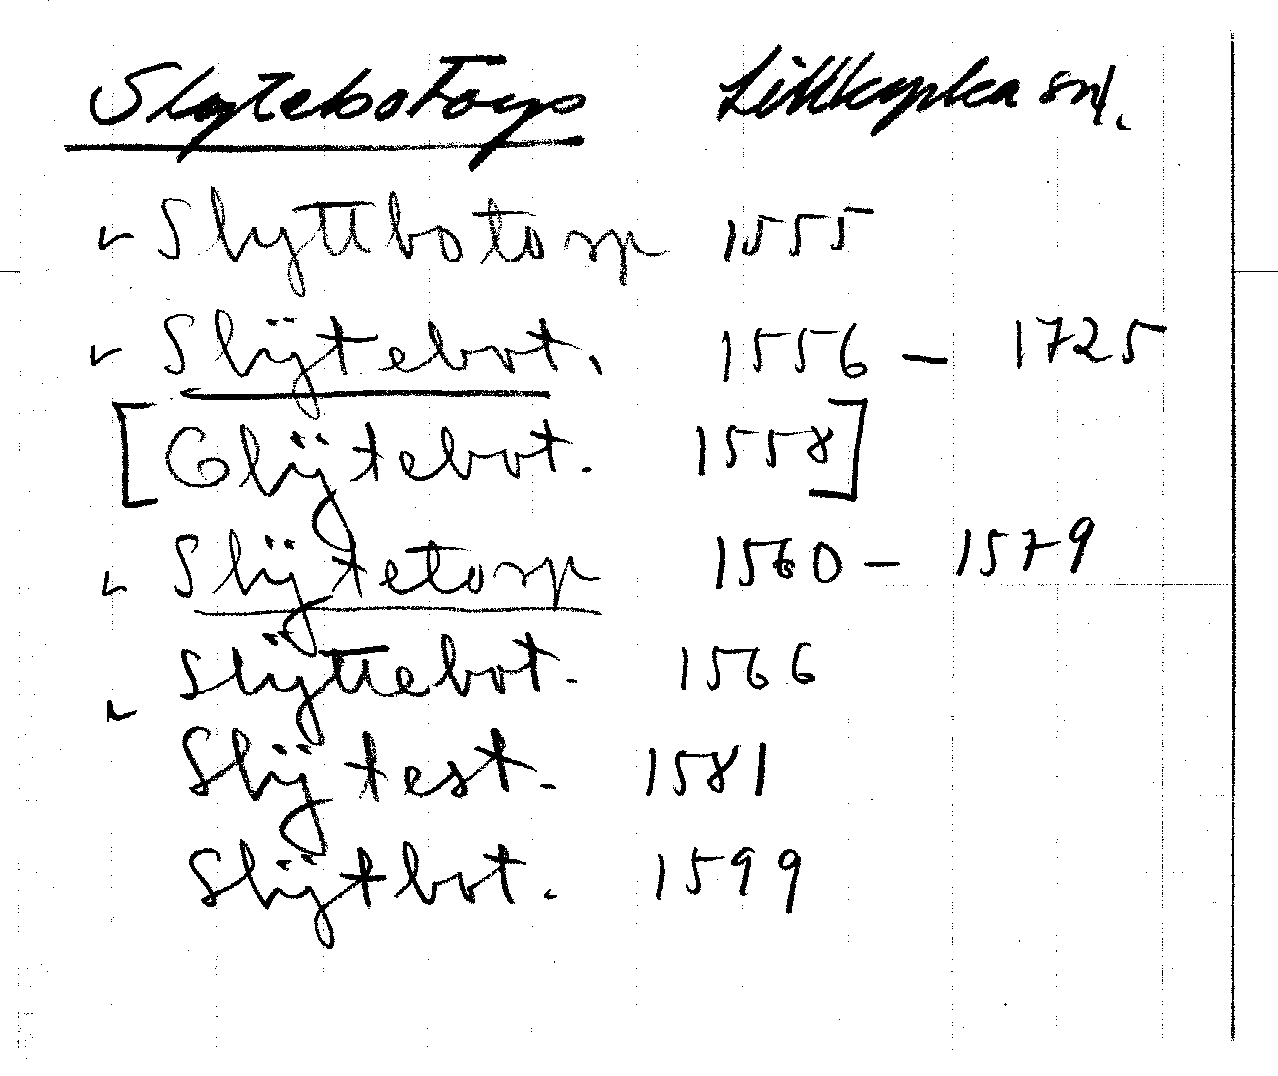 Slytebotorp Lillkyrka sn/.
Slyttbotorp 1555
Slÿtebot. 1556 – 1725
[Glÿtebot. 1558]
Slÿtetorp 1560 – 1579
Slÿttebot. 1566
Slÿtest. 1581
Slÿtbot. 1599